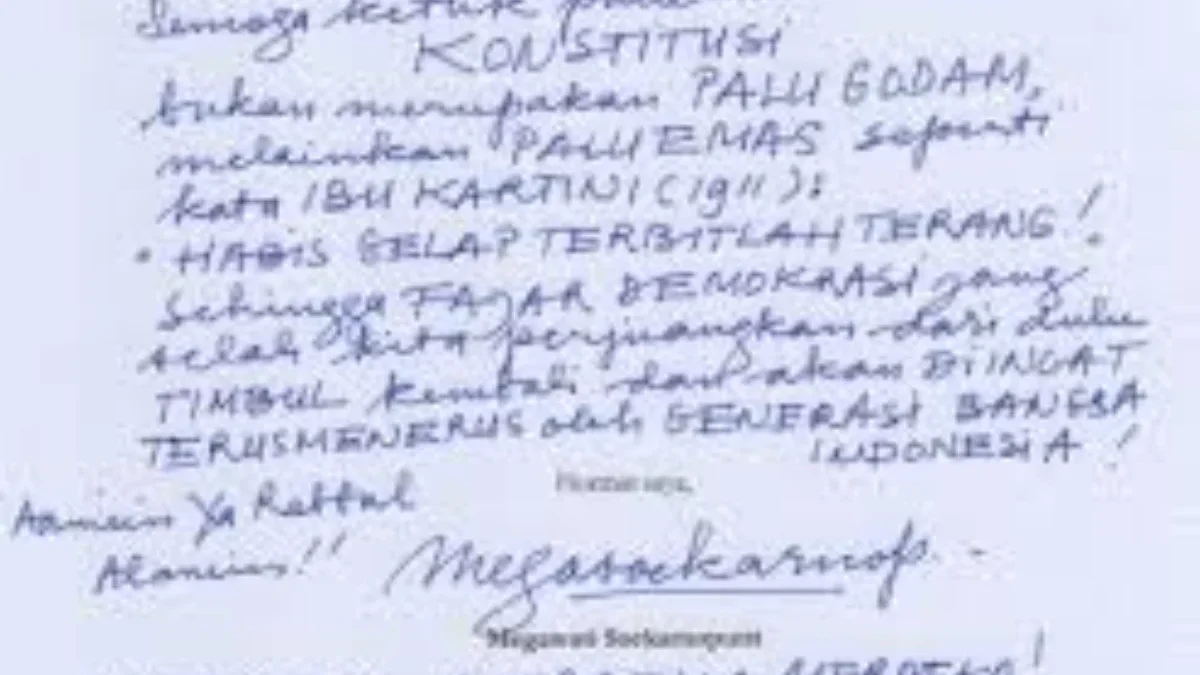 Semoga ketuk palu
KONSTITUSI
bukan merupakan PALU GODAM,
melainkan PALU EMAS seperti
kata IBU KARTINI (1911):
" HABIS GELAP TERBITLAH TERANG !
Sehingga FAJAR DEMOKRASI yang
telah kita perjuangkan dari dulu
TIMBUL kembali dan akan DiINGAT
TERUSMENERUS oleh GENERASi BANGSA
INDONESiA !
Hormat saya,
Aamiin Ya Rabbal
Alamin !!
Megasoekarnop.
Megawati Soekarnoputri
MERDEKA !